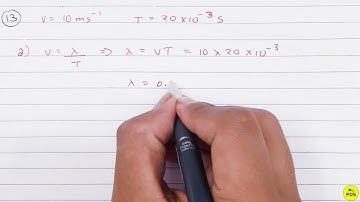 13 V = 10 ms⁻¹ T = 20 × 10⁻³ S
a) V = λ/T ⇒ λ = VT = 10 × 20 × 10⁻³
λ = 0.